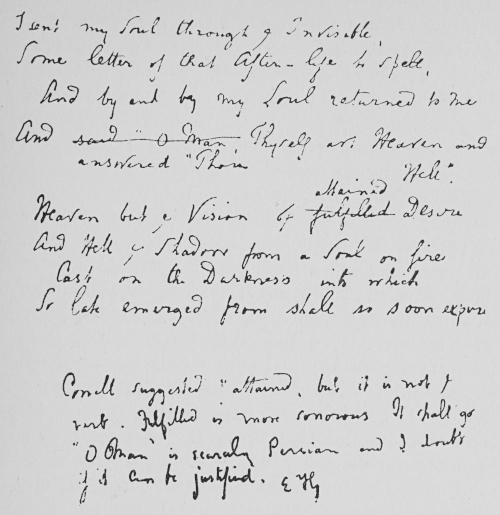 I sent my Soul through y Invisible,
Some letter of that After-life to spell,
And by and by my Soul returned to me
And said "O Man, Thyself art Heaven and
answered "Thou
Hell".
attained
Heaven but y Vision of fulfilled Desire
And Hell y Shadow from a Soul on fire
Cast on the Darkness into which
So late emerged from shall so soon expire
Cowell suggested "attained, but it is not y
verb. Fulfilled is more sonorous It shall go
"O Man" is scarcely Persian and I doubt
if it can be justified. E